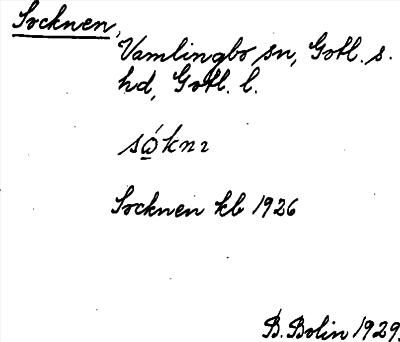 Socknen,
Vamlingbo sn, Gotl. s.
hd, Gotl. l.
Socknen kb 1926
B. Bolin 1929.